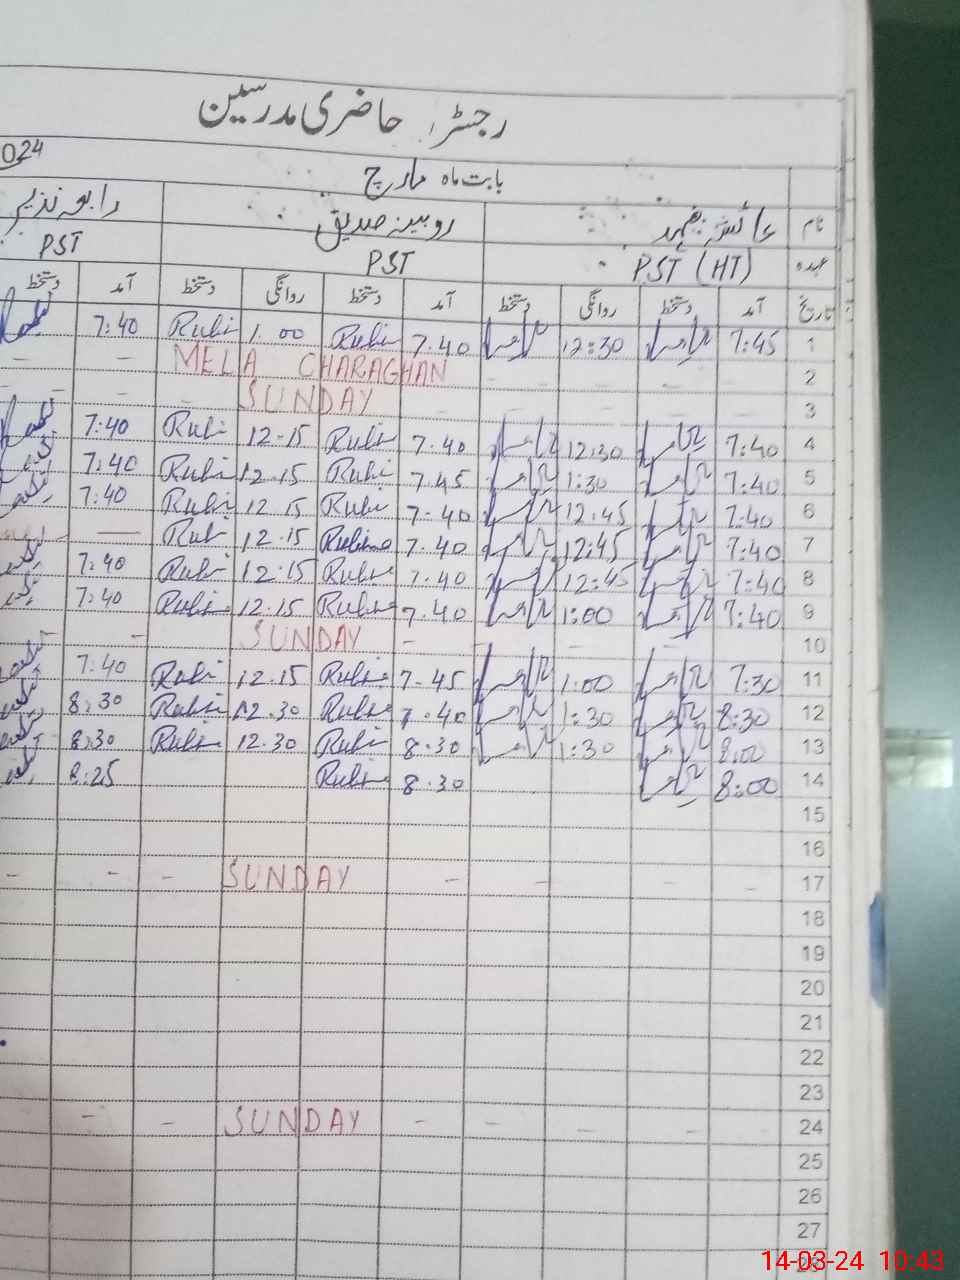 رجسٹر حاضری مدرسین
024
بابت ماہ مارچ
نام عائشہ فہد روبینہ صدیق رابعہ نذیر
عہدہ PST (HT) PST PST
تاریخ آمد دستخط روانگی دستخط آمد دستخط روانگی دستخط آمد دستخط
1 7:45 12:30 7.40 Rubi 1.00 Rubi 7:40
2 MELA CHARAGHAN
3 SUNDAY
4 7:40 12:30 7.40 Rubi 12.15 Rubi 7:40
5 7:40 1:30 7.45 Rubi 12.15 Rubi 7:40
6 7:40 12:45 7.40 Rubi 12.15 Rubi 7:40
7 7:40 12:45 7.40 12.15 Rubi
8 7:40 12:45 7.40 Rubi 12.15 Rubi 7:40
9 7:40 1:00 7.40 Rubi 12.15 Rubi 7:40
10 SUNDAY
11 7:30 1:00 7.45 Rubi 12.15 Rubi 7:40
12 8:30 1:30 7.40 Rubi 12.30 Rubi 8:30
13 8:00 1:30 8.30 Rubi 12.30 Rubi 8:30
14 8:00 8.30 Rubi 8:25
15
16
17 SUNDAY
18
19
20
21
22
23
24 SUNDAY
25
26
27
14-03-24 10:43